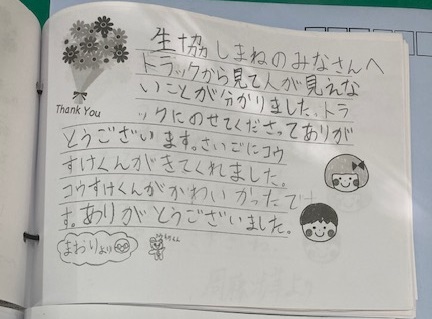 生協しまねのみなさんへ
トラックから見て人が見えな
いことが分かりました。トラ
ックにのせてくださってありが
とうございます。さいごにコウ
すけくんがきてくれました。
コウすけくんががわいかったで
す。ありがとうございました。
Thank You
まおりより